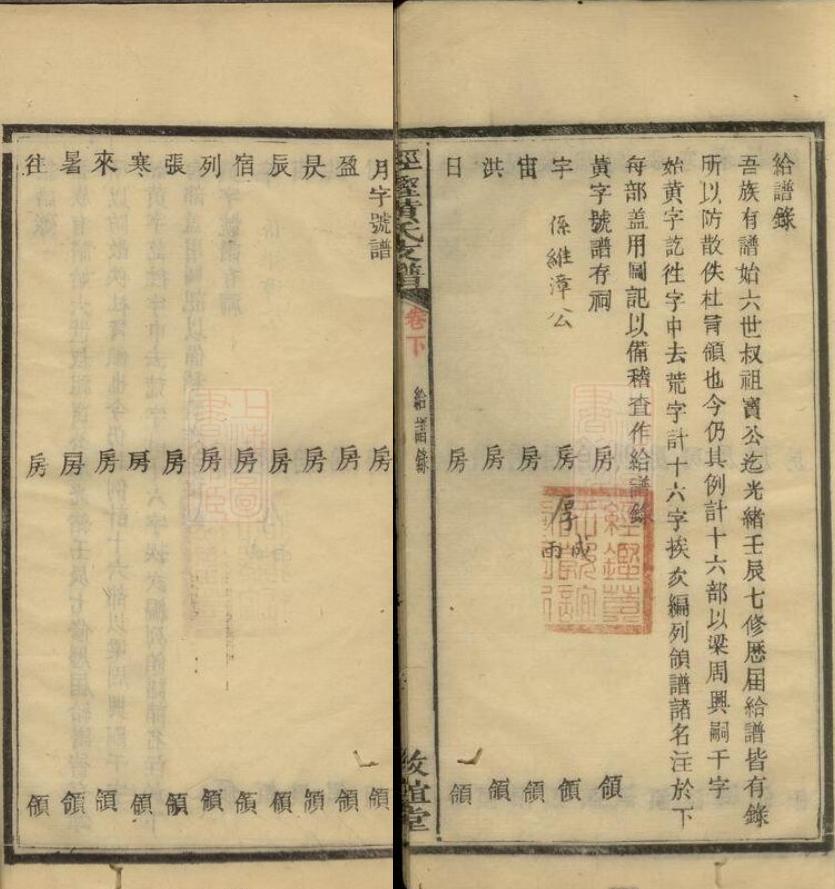 給譜錄
吾族有譜始六世叔祖寶公迄光緒壬辰七修歷屆給譜皆有錄
所以防散佚杜冐領也今仍其例計十六部以梁周興嗣千字
始黃字訖徃字中去荒字計十六字挨次編列領譜諸名注於下
每部盖用圖記以備稽查作給譜錄
黃字號譜存祠 房 領
宇 係維漳公 房 厚成 雨 領
宙 房 領
洪 房 領
日 房 領
黃氏支譜 卷下 給譜錄 誼堂
月字號譜 房 領
盈 房 領
昃 房 領
辰 房 領
宿 房 領
列 房 領
張 房 領
寒 房 領
來 房 領
暑 房 領
往 房 領